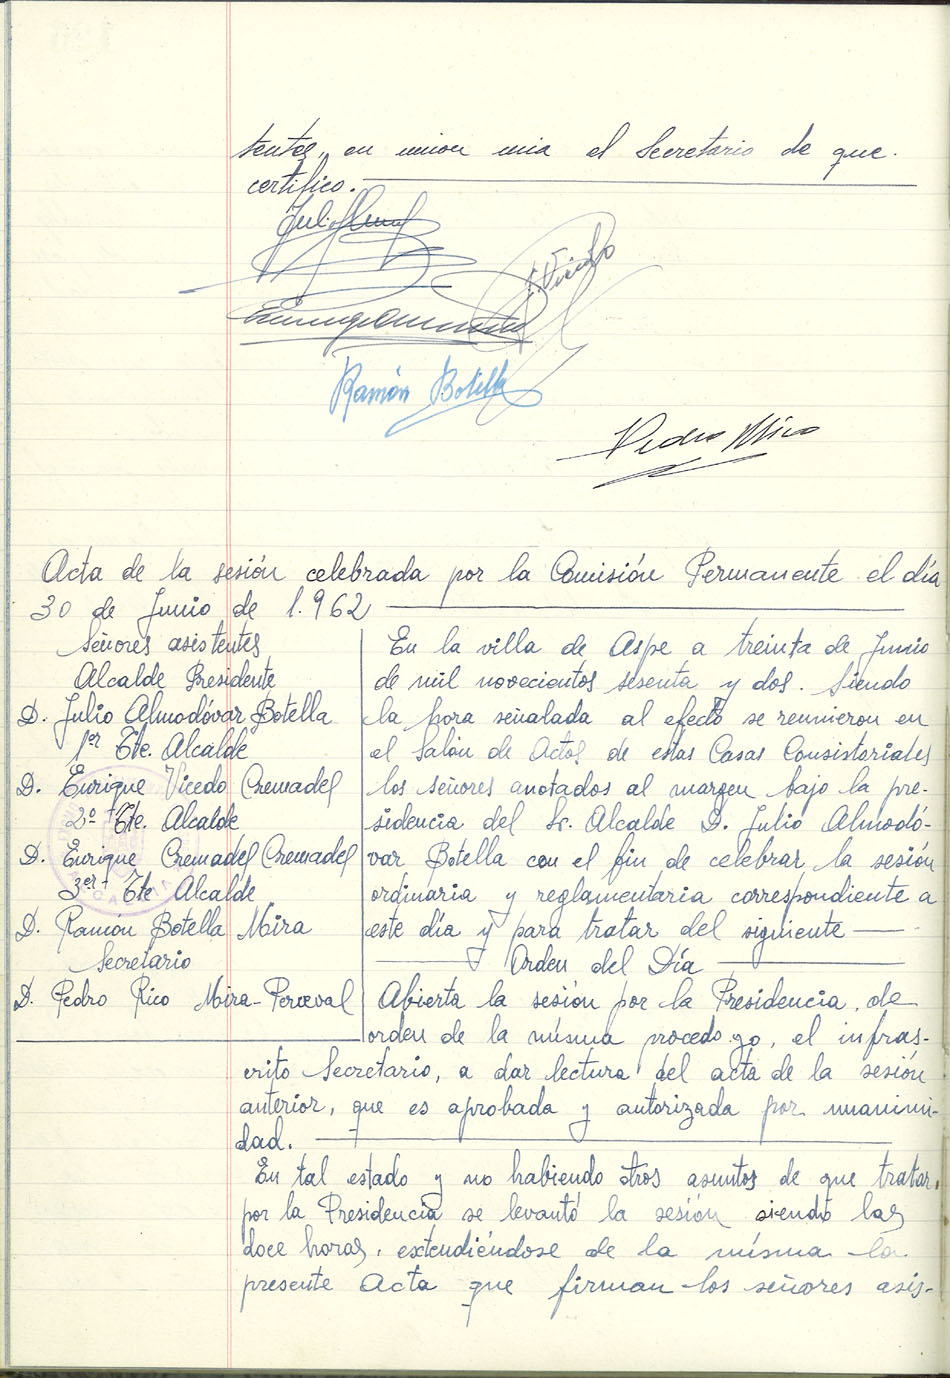 tentes, en union mia el Secretario de que
certifico.
Ramón Botella
Pedro Rico
Acta de la sesión celebrada por la Comisión Permanente el día
30 de Junio de 1.962
Señores asistentes
Alcalde Presidente
D. Julio Almodóvar Botella
1er Tte. Alcalde
D. Enrique Vicedo Cremades
2º Tte. Alcalde
D. Enrique Cremades Cremades
3er Tte Alcalde
D. Ramón Botella Mira
Secretario
D. Pedro Rico Mira-Perceval
En la villa de Aspe a treinta de Junio
de mil novecientos sesenta y dos. Siendo
la hora señalada al efecto se reunieron en
el Salón de Actos de estas Casas Consistoriales
los señores anotados al margen bajo la pre-
sidencia del Sr. Alcalde D. Julio Almodó-
var Botella con el fin de celebrar la sesión
ordinaria y reglamentaria correspondiente a
este día y para tratar del siguiente
Orden del Día
Abierta la sesión por la Presidencia, de
orden de la misma procedo yo, el infras-
crito Secretario, a dar lectura del acta de la sesión
anterior, que es aprobada y autorizada por unanimi-
dad.
En tal estado y no habiendo otros asuntos de que tratar,
por la Presidencia se levantó la sesión siendo las
doce horas, extendiéndose de la misma la
presente Acta que firman los señores asis-